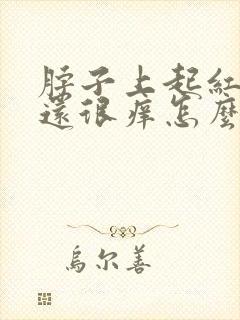 脖子上起紅
還很痒怎麼
烏尔善